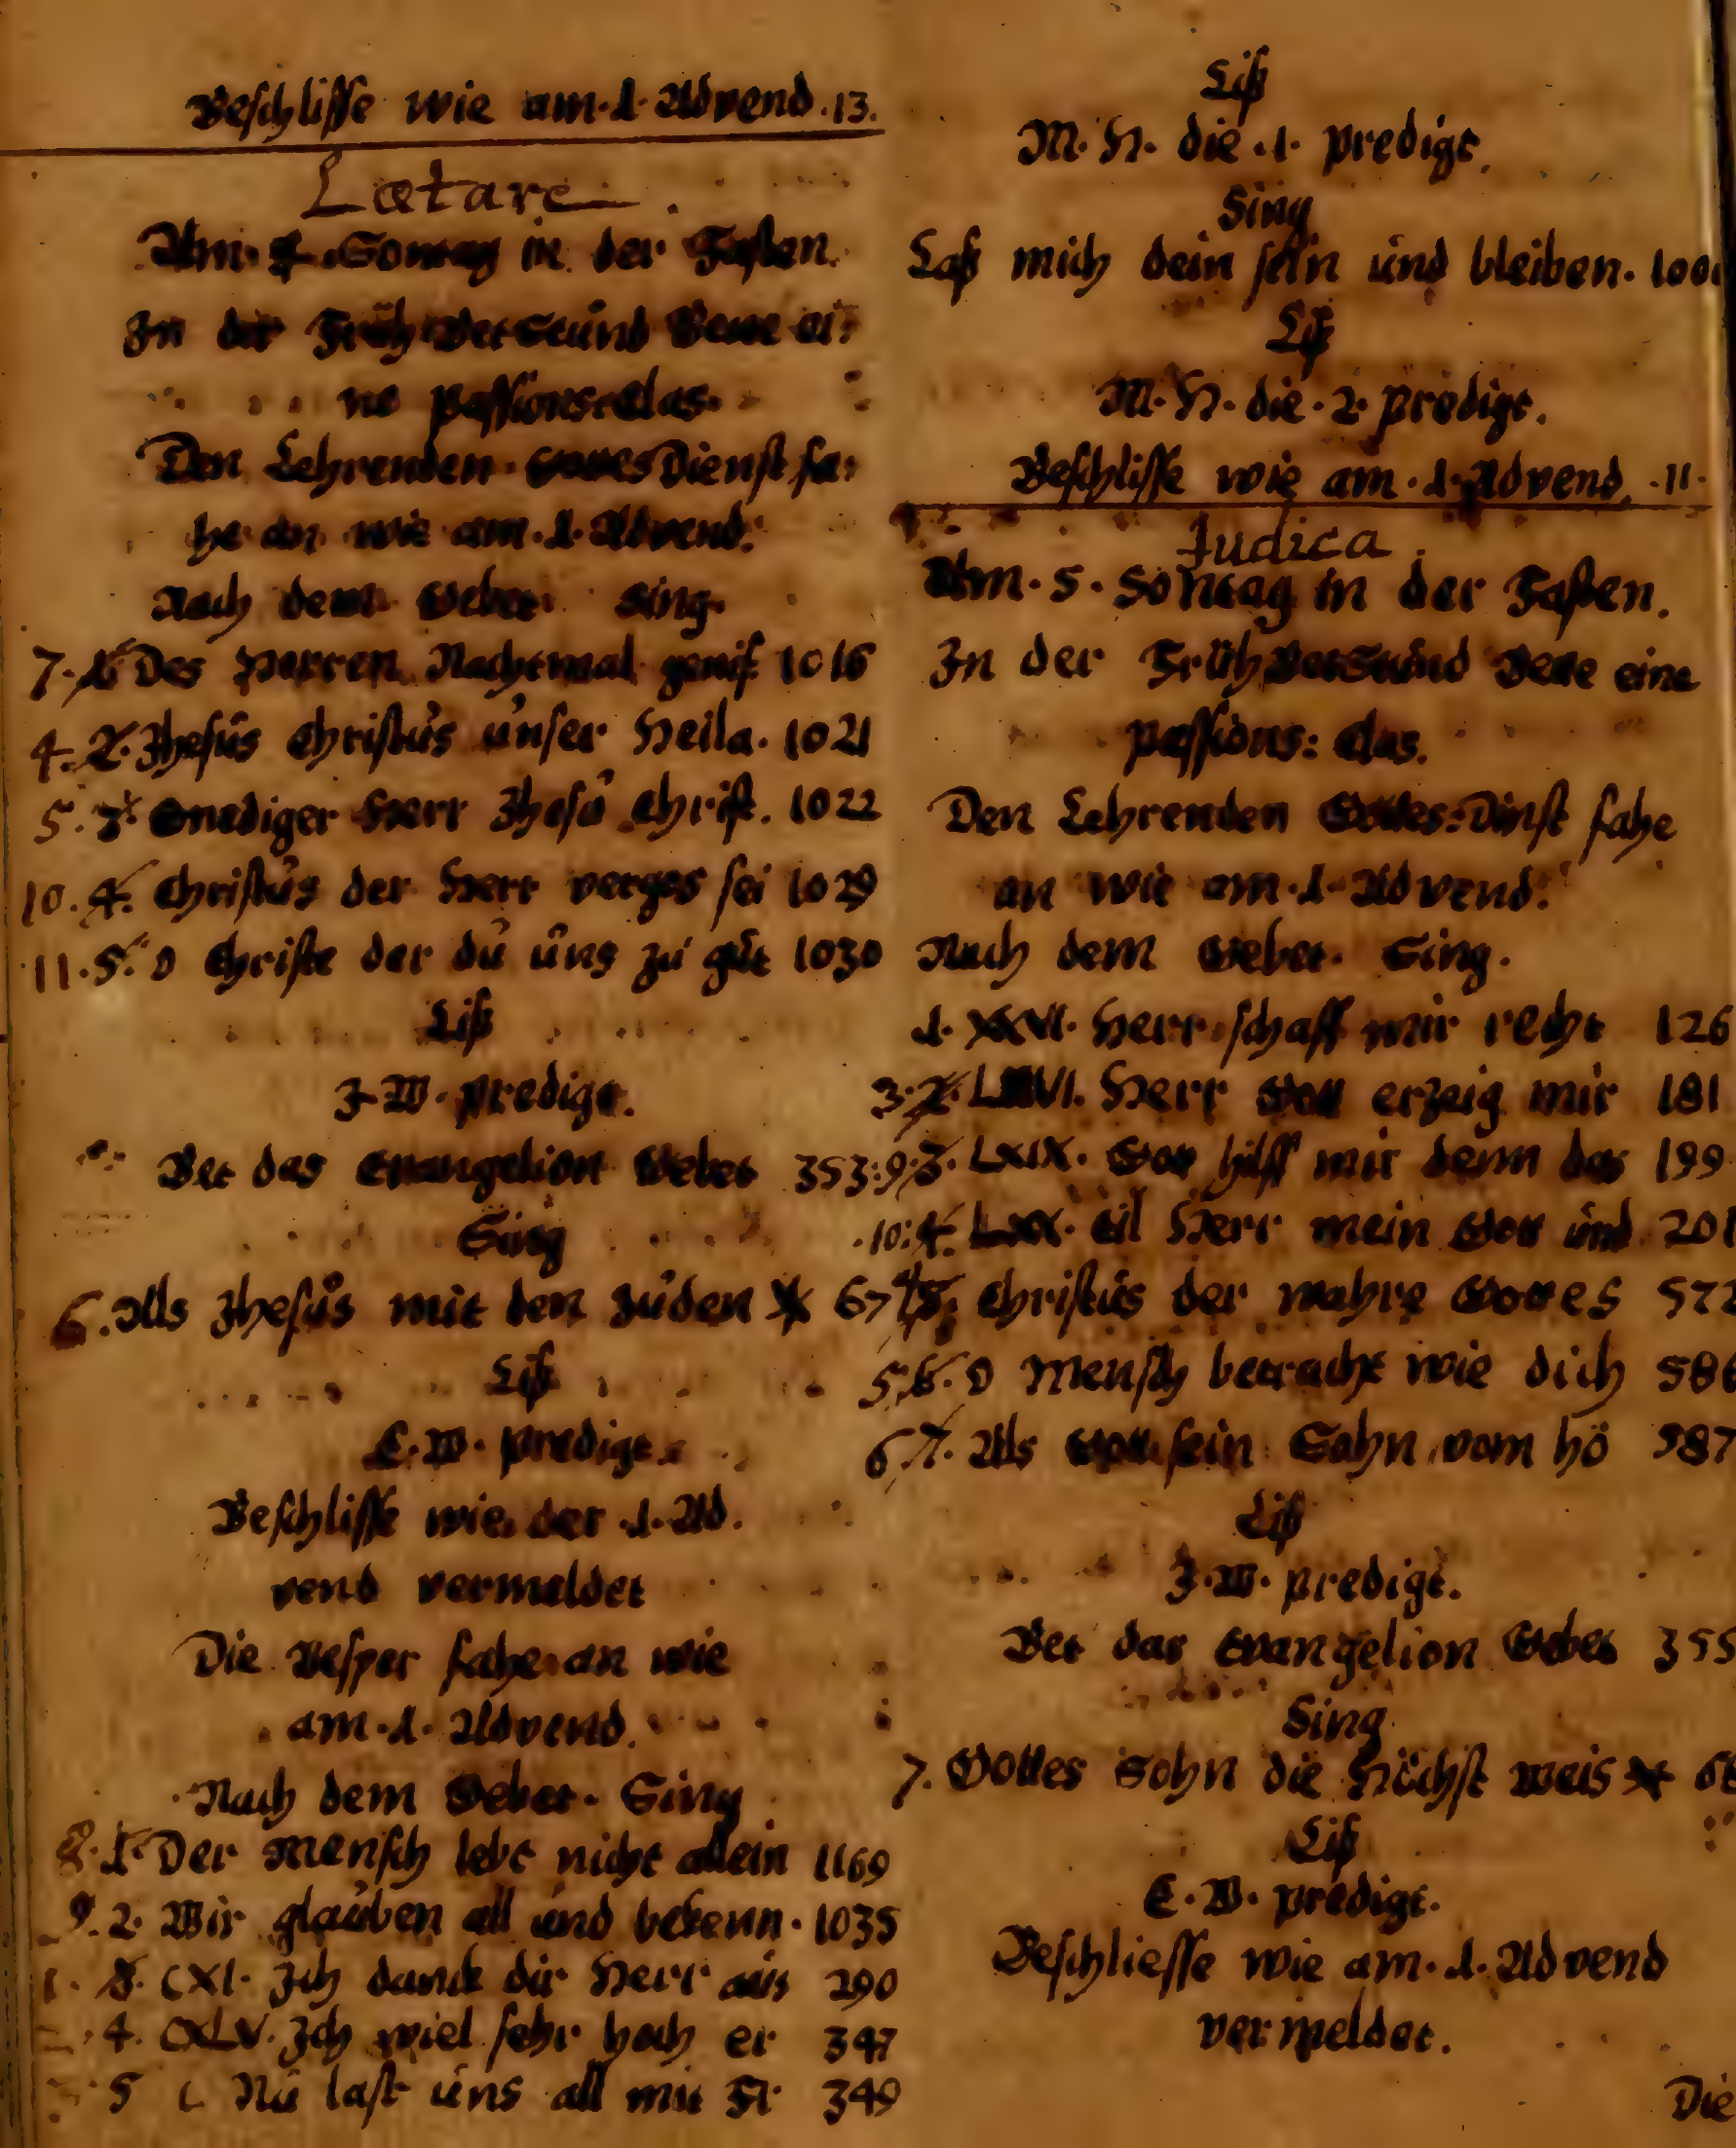 Beschlisse wie am. 1. Advend. 13.
Lætare.
Am. 4. Sontag in der Fasten.
In der Früh Betstund Bette ei-
ne passions: Clas.
Den Lehrenden. Gottes Dienst fa-
he an wie am. 1. Advend.
Nach dem Gebet. Sing.
7. 1. Des Herren Nachtmal genis 1016
4. 2. Jhesus Christus unser Heila. 1021
5. 3. Gnediger Herr Jhesu Christ. 1022
10. 4. Christus der Herr vergos sei 1029
11. 5. O Christe der du uns zu gut 1030
Liß
J. W. predigt.
Bet das Evangelion Gebet 353:
Sing
6. Als Jhesus mit den Juden * 67
Liß
E. W. predigt.
Beschlisse wie der 1. Ad.
vend vermeldet
Die Vesper fahe an wie
am. 1. Advend.
Nach dem Gebet. Sing
8. 1. Der Mensch lebt nicht allein 1169
9. 2. Wir glauben all und bekenn. 1035
1. 3. CXI. Jch danck dir Herr aus 290
4. CXLV. Jch wiel sehr hoch er 347
5 Nu last uns all mit 349
Liß
M. H. die. 1. predigt.
Sing
Laß mich dein sein und bleiben. 100
Liß
M. H. die. 2. predigt.
Beschlisse wie am. 1. Advend. 11.
Judica.
Am. 5. Sontag in der Fasten.
In der Früh Betstund Bette eine
passions: Clas.
Den Lehrenden Gottes: Dinst fahe
an wie am. 1. Advend.
Nach dem Gebet. Sing.
1. XXVI. Herr schaff mir recht 126
3. 2. Herr Gott erzeig mir 181
9. 3. LXIX. Gott hilff mir denn das 199
10. 4. LXX. Eil Herr mein Gott und 201
4. 5. Christus der wahre Gottes 572
5. 6. O Mensch betracht wie dich 586
6. 7. Als Gott sein Sohn vom hö 587
Liß
J. W. predigt.
Bet das Evangelion Gebet 355
Sing
7. Gottes Sohn die Höchst weis * 68
Liß
E. W. predigt.
Beschliesse wie am. 1. Advend
vermeldet.
Die